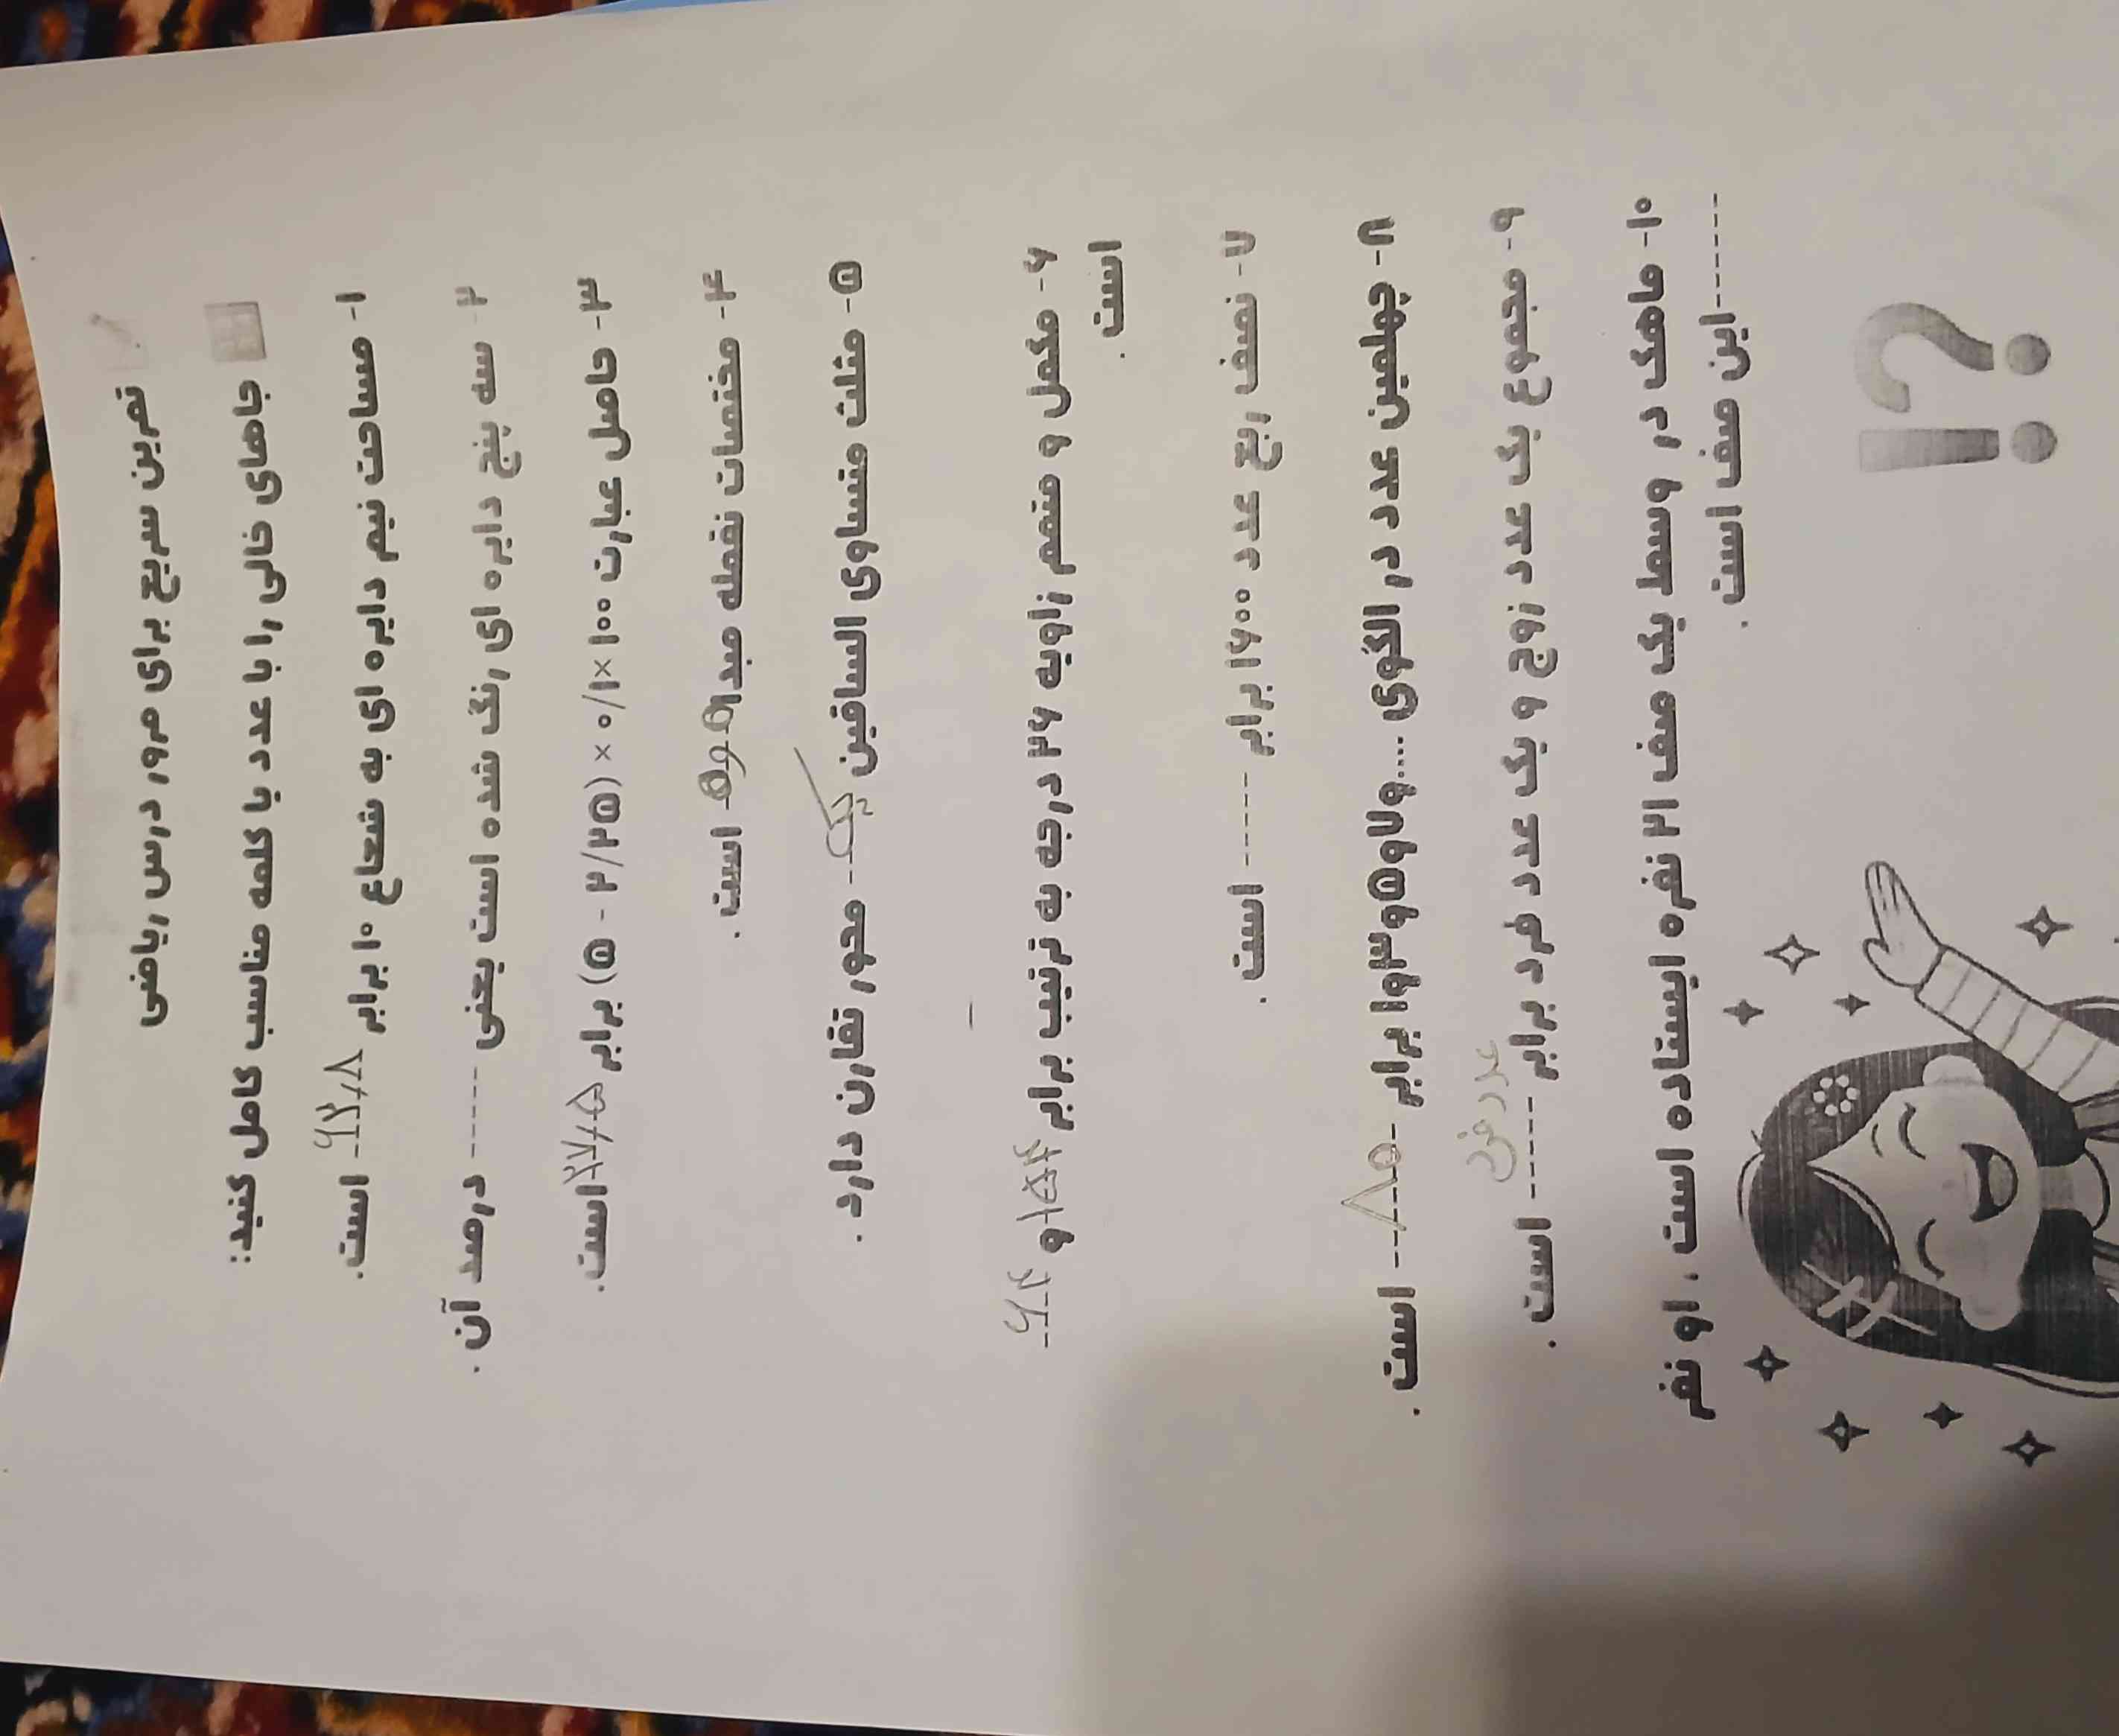 تمرین سریع برای مرور درس ریاضی
جاهای خالی را با عدد یا کلمه مناسب کامل کنید:
۱- مساحت نیم دایره ای به شعاع ۱۰ برابر ------ است.
۲- سه پنج دایره ای رنگ شده است یعنی ------ درصد آن .
۳- حاصل عبارت ۱۰۰×۰/۱ × (۵ - ۲/۲۵) برابر ------ است.
۴- مختصات نقطه مبدا ------ است .
۵- مثلث متساوی الساقین یک --- محور تقارن دارد .
۶- مکمل و متمم زاویه ۲۶ درجه به ترتیب برابر ۱۵۴ و ۶۴ ---
است .
۷- نصف ربع عدد ۱۶۰۰ برابر ------ است .
۸- چهلمین عدد در الگوی ....و۷و۵و۳و۱ برابر ------ است .
۹- مجموع یک عدد زوج و یک عدد فرد برابر ------ است .
عدد فرد
۱۰- ماهک در وسط یک صف ۲۱ نفره ایستاده است ، او نفر
------این صف است .
؟!